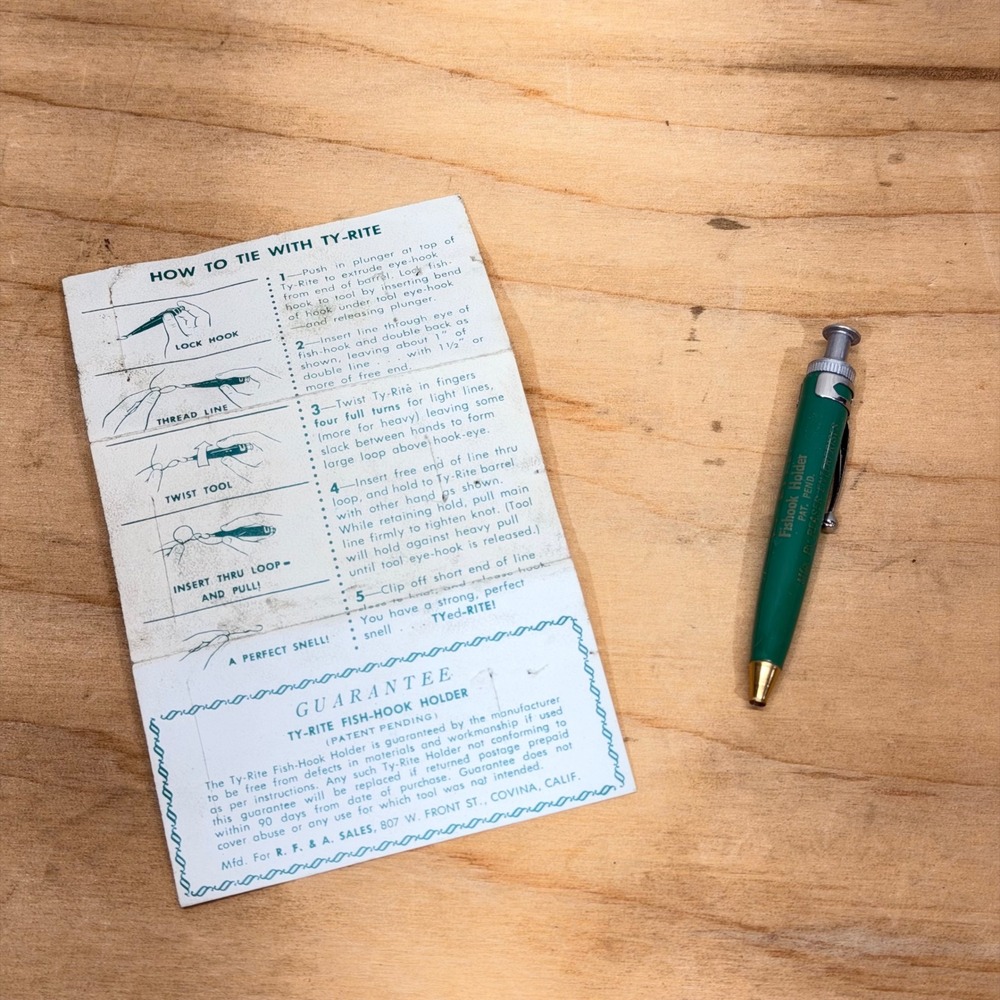 HOW TO TIE WITH TY-RITE
LOCK HOOK
THREAD LINE
TWIST TOOL
INSERT THRU LOOP-
AND PULL!
A PERFECT SNELL!
1—Push in plunger at top of
Ty-Rite to extrude eye-hook
from end of barrel. Lock fish-
hook to tool by inserting bend
of hook under tool eye-hook
—and releasing plunger.
2—Insert line through eye of
fish-hook and double back as
shown, leaving about 1" of
double line . . . with 1½" or
more of free end.
3—Twist Ty-Rite in fingers
four full turns for light lines,
(more for heavy) leaving some
slack between hands to form
large loop above hook-eye.
4—Insert free end of line thru
loop, and hold to Ty-Rite barrel
with other hand as shown.
While retaining hold, pull main
line firmly to tighten knot. (Tool
will hold against heavy pull
until tool eye-hook is released.)
5—Clip off short end of line
close to knot, and release hook.
You have a strong, perfect
snell . . . TYed-RITE!
GUARANTEE
TY-RITE FISH-HOOK HOLDER
(PATENT PENDING)
The Ty-Rite Fish-Hook Holder is guaranteed by the manufacturer
to be free from defects in materials and workmanship if used
as per instructions. Any such Ty-Rite Holder not conforming to
this guarantee will be replaced if returned postage prepaid
within 90 days from date of purchase. Guarantee does not
cover abuse or any use for which tool was not intended.
Mfd. For R. F. & A. SALES, 807 W. FRONT ST., COVINA, CALIF.
Fishook Holder
PAT. PEND.